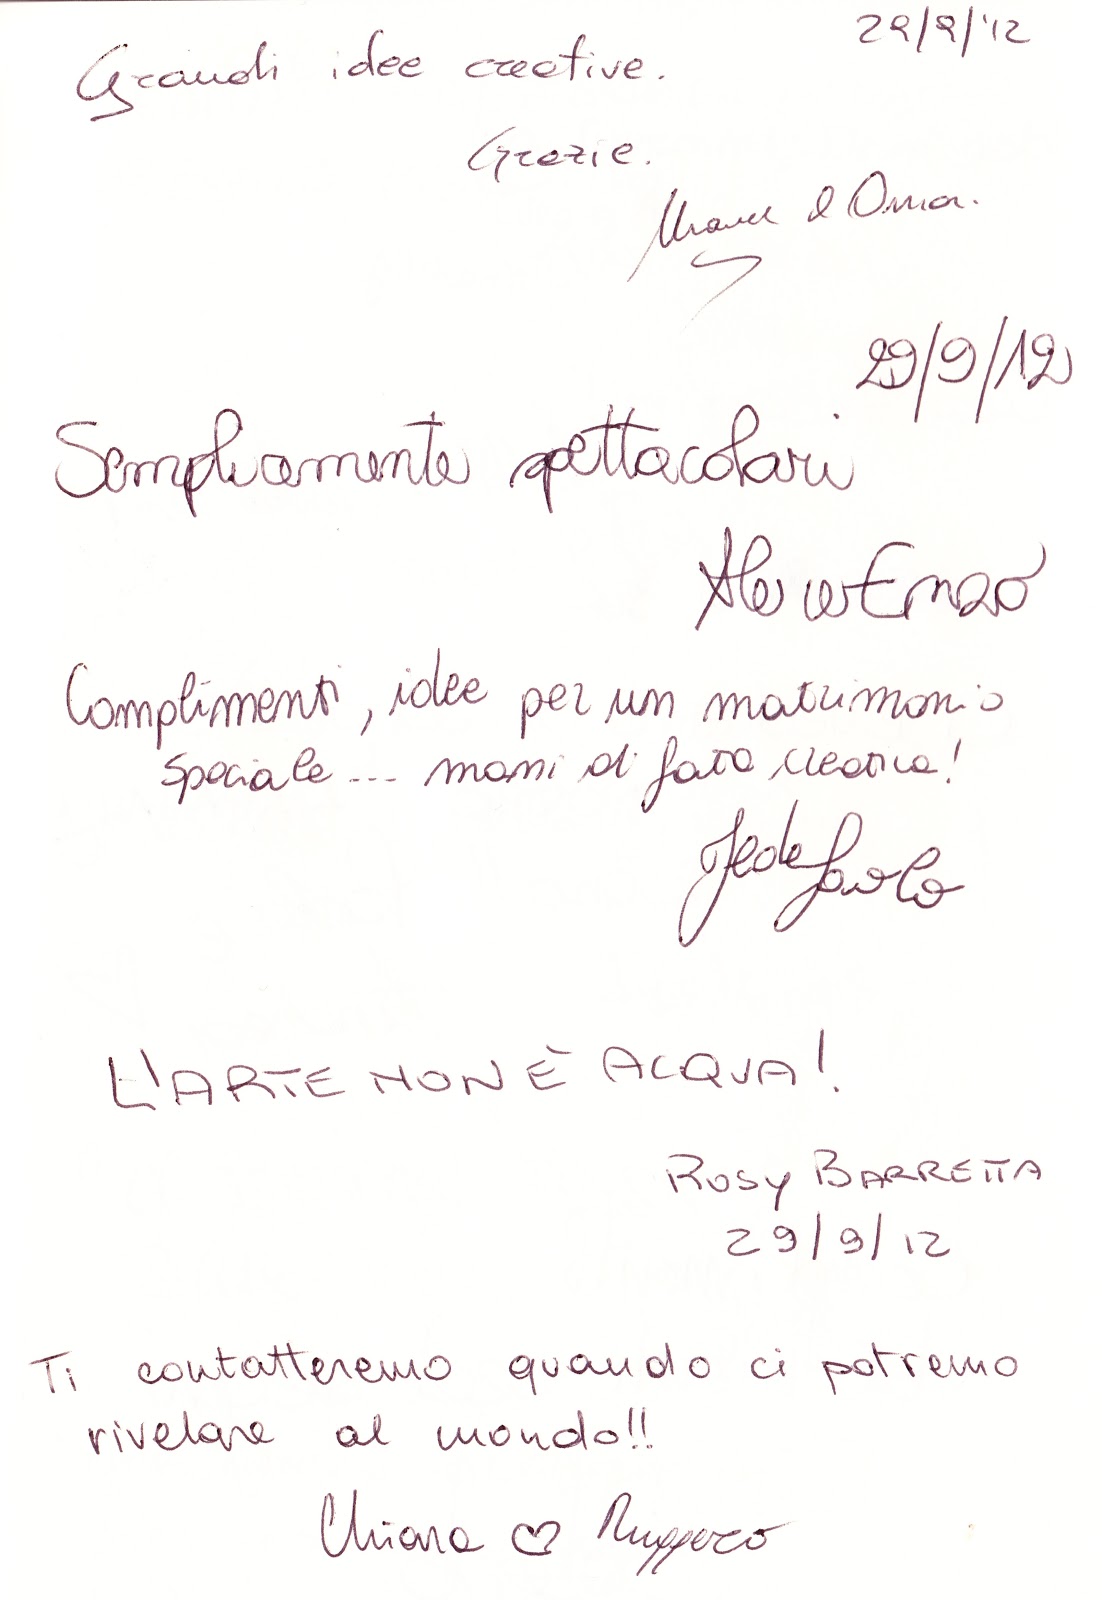 29/9/'12
Grandi idee creative.
Grazie.
& Omar.
29/9/12
Semplicemente spettacolari
Ale Enzo
Complimenti, idee per un matrimonio
speciale... mani di fata creativa!
Fede Paolo
L'ARTE NON È ACQUA!
ROSY BARRETTA
29/9/12
Ti contatteremo quando ci potremo
rivelare al mondo!!
Chiara ♡ Ruggero